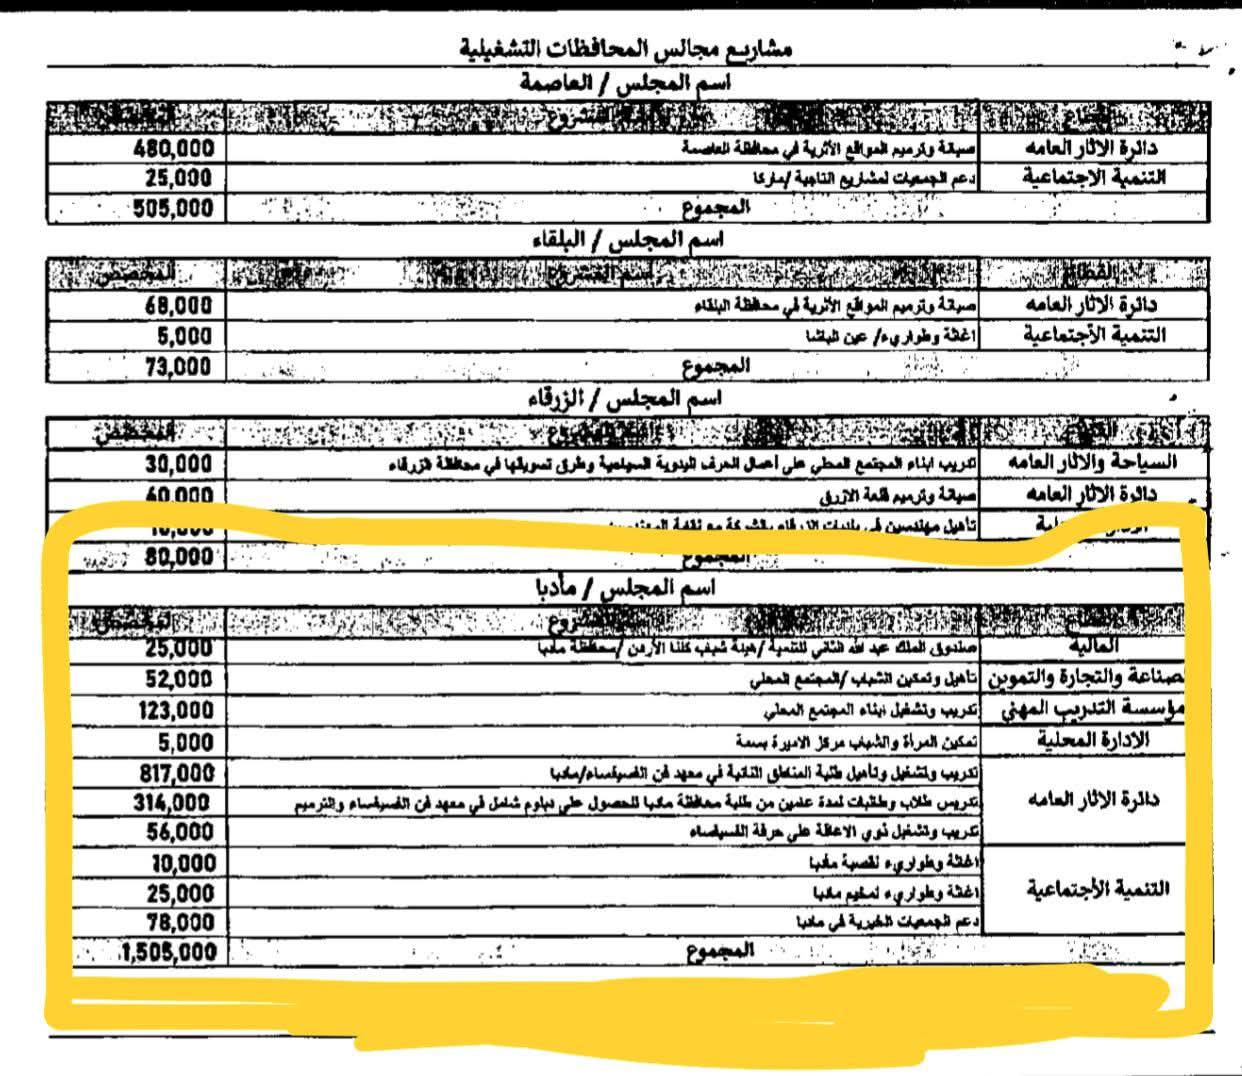 مشاريع مجالس المحافظات التشغيلية
اسم المجلس / العاصمة
المشروع
دائرة الاثار العامه صيانة وترميم المواقع الأثرية في محافظة العاصمة 480,000
التنمية الاجتماعية دعم الجمعيات لمشاريع انتاجية /ماركا 25,000
المجموع 505,000
اسم المجلس / البلقاء
القطاع اسم المشروع المخصص
دائرة الاثار العامه صيانة وترميم المواقع الأثرية في محافظة البلقاء 68,000
التنمية الأجتماعية اغاثة وطواريء/ عين الباشا 5,000
المجموع 73,000
اسم المجلس / الزرقاء
المخصص
السياحة والاثار العامه تدريب ابناء المجتمع المحلي على أعمال الحرف اليدوية السياحية وطرق تسويقها في محافظة الزرقاء 30,000
دائرة الاثار العامه صيانة وترميم قلعة الازرق 40,000
تأهيل مهندسين في بلديات الزرقاء بالشركة مع نقابة المهندسين 10,000
المجموع 80,000
اسم المجلس / مأدبا
المشروع
المالية صندوق الملك عبد الله الثاني للتنمية /هيئة شباب كلنا الأردن /محافظة مادبا 25,000
لصناعة والتجارة والتموين تاهيل وتمكين الشباب /المجتمع المحلي 52,000
مؤسسة التدريب المهني تدريب وتشغيل ابناء المجتمع المحلي 123,000
الادارة المحلية تمكين المرأة والشباب مركز الاميرة بسمة 5,000
تدريب وتشغيل وتأهيل طلبة المناطق النائية في معهد فن الفسيفساء/مادبا 817,000
دائرة الاثار العامه تدريس طلاب وطالبات لمدة عامين من طلبة محافظة مادبا للحصول على دبلوم شامل في معهد فن الفسيفساء والترميم 314,000
تدريب وتشغيل ذوي الاعاقة على حرفة الفسيفساء 56,000
اغاثة وطواريء لقصبة مأدبا 10,000
التنمية الأجتماعية اغاثة وطواريء لمخيم مادبا 25,000
دعم الجمعيات الخيرية في مادبا 78,000
المجموع 1,505,000